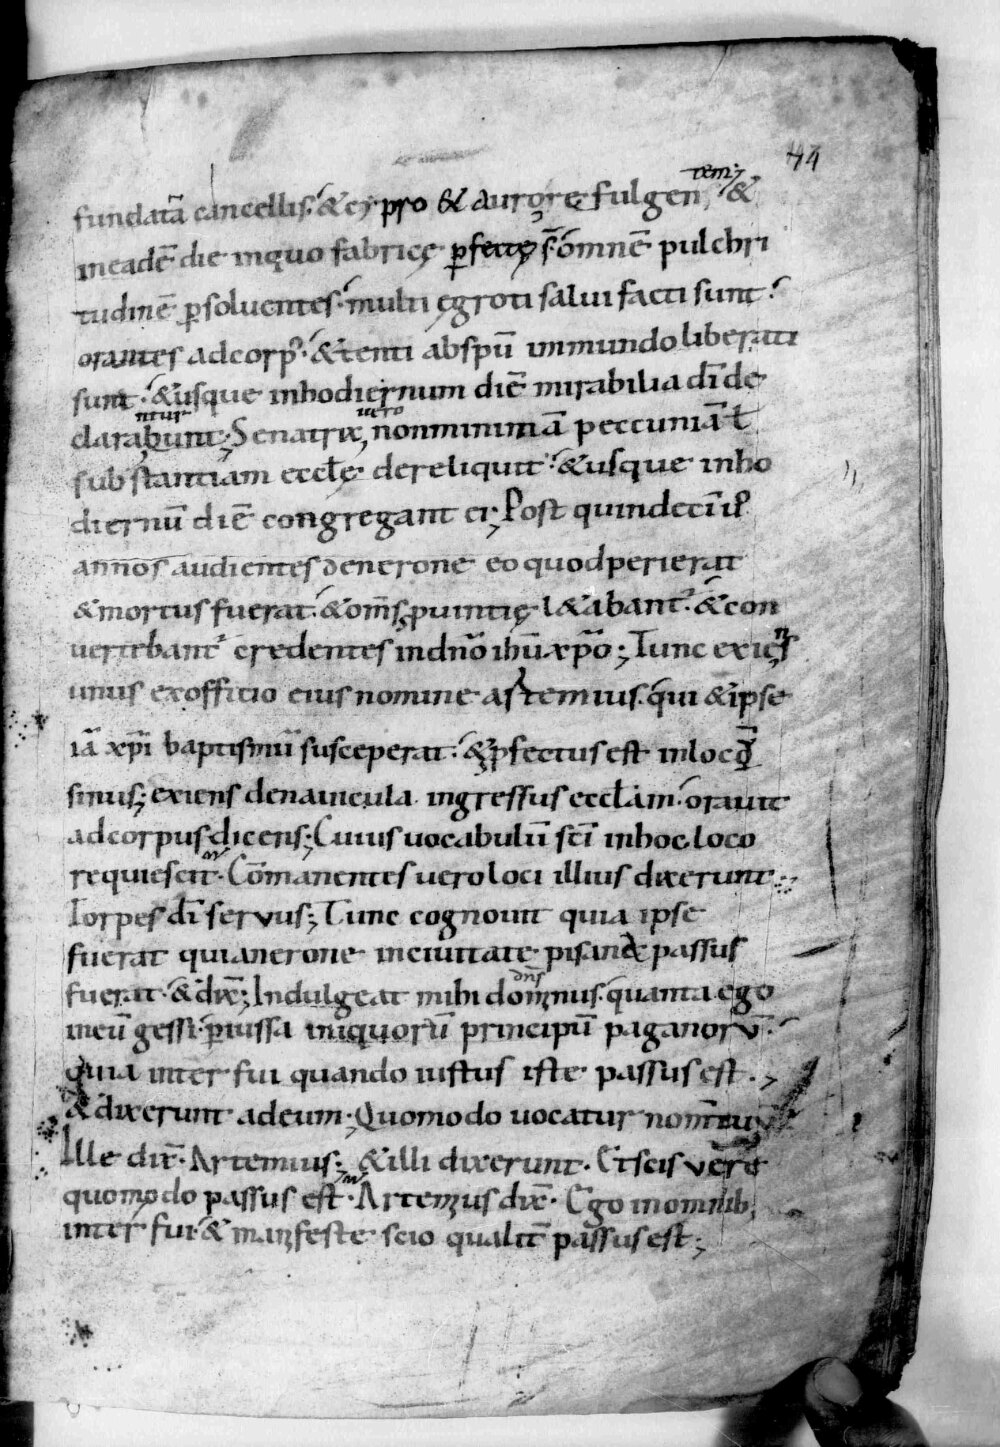 44
fundatā cancellis. & cypro & aurore fulgentem; &
in eadē die in quo fabricę ꝑfectę s̄. omnē pulchri
tudinē ꝑsoluentes. multi ęgroti salui facti sunt.
orantes ad corpꝰ. & tenti ab spū immundo liberati
sunt. & usque in hodiernum diē mirabilia dī de
clarabunt ntur; Senatrix uero non minimā peccuniā ł
substantiam eccłę dereliquit. & usque in ho
diernū diē congregant ei; Post quindecī
annos audientes de nerone eo quod perierat
& mortus fuerat. & om̄s ꝓuintię l&abantꝰ. & con
uertebantꝰ credentes in dn̄o ihū xp̄o; Tunc exiens
unus ex offitio eius nomine artemius. qui & ipse
iā xp̄i baptismū susceperat. & ꝓfectus est in loco
sinus; exiens de nauicula ingressus eccłam. orauit
ad corpus dicens; Cuius uocabulū sc̄i in hoc loco
requiescit. Cōmanentes uero loci illius dixerunt.
Torpes dī servus; Tunc cognouit quia ipse
fuerat qui a nerone in ciuitate pisan& passus
fuerat. & dix̄; Indulgeat mihi dominus dn̄s. quanta ego
in eū gessi. ꝑ iussa iniquorū principū paganorū.
quia inter fui quando iustus iste passus est.
& dixerunt ad eum. Quomodo uocatur nom̄ tuū
Ille dix̄. Artemius; & illi dixerunt. Et scis vere
quomodo passus est. Artemius dix̄. Ego in omnib;
inter fui. & manifeste scio qualit̄ passus est;